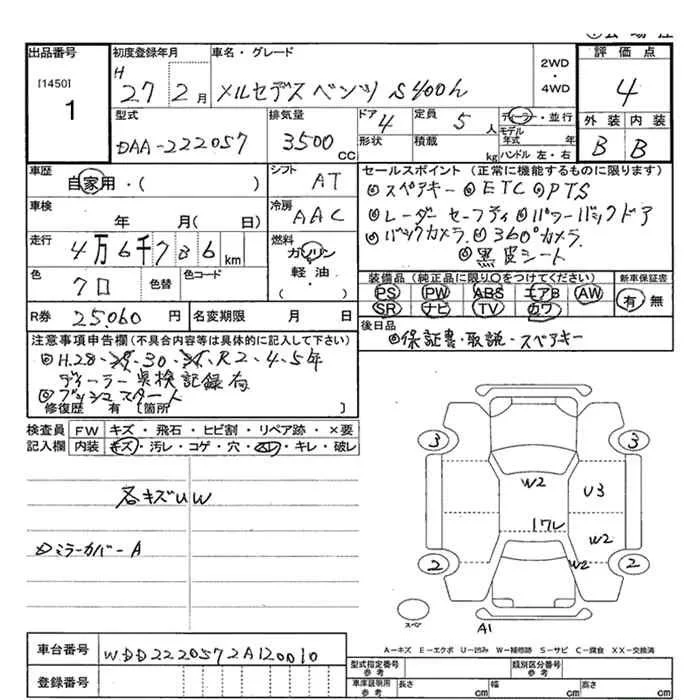 出品番号 初度登録年月 車名・グレード 2WD・4WD 評価点
[1450] 1 H 27 2月 メルセデスベンツ S400h 4
型式 排気量 ドア 4 定員 5 人 ディーラー・並行 外装 内装
DAA-222057 3500 CC 形状 積載 kg モデル年式 年 ハンドル 左・右 B B
車歴 自家用・( ) シフト AT セールスポイント (正常に機能するものに限ります)
◎スペアキー ◎ETC ◎PTS
車検 年 月(日) 冷房 AAC
◎レーダーセーフティ ◎パワーバックドア
走行 4万6千736km 燃料 ガソリン 軽油・( )
◎バックカメラ ◎360°カメラ
◎黒皮シート
色 クロ 色替 色コード 装備品 (純正品に限り○をつけてください) 新車保証書
PS PW ABS エアB AW 有・無
SR ナビ TV カワ
R券 25,060 円 名変期限 月 日 後日品
◎保証書・取説・スペアキー
注意事項申告欄 (不具合内容等は具体的に記入して下さい)
◎H.28、29、30、31、R2、4、5年
ディーラー点検記録有
◎プッシュスタート
修復歴 有 [箇所 ]
検査員 FW キズ・飛石・ヒビ割・リペア跡・×要
記入欄 内装 キズ・汚レ・コゲ・穴・スレ・キレ・破レ
各キズUW
ミラーカバーA
3 3
W2 U3
1ワレ W2
2 W2 2
スペア A1
A-キズ E-エクボ U-凹み W-補修跡 S-サビ C-腐食 XX-交換済
車台番号 WDD2220572A120010
型式指定番号 参考 類別区分番号 参考
登録番号 車庫証明用 参考 長さ cm 幅 cm 高さ cm